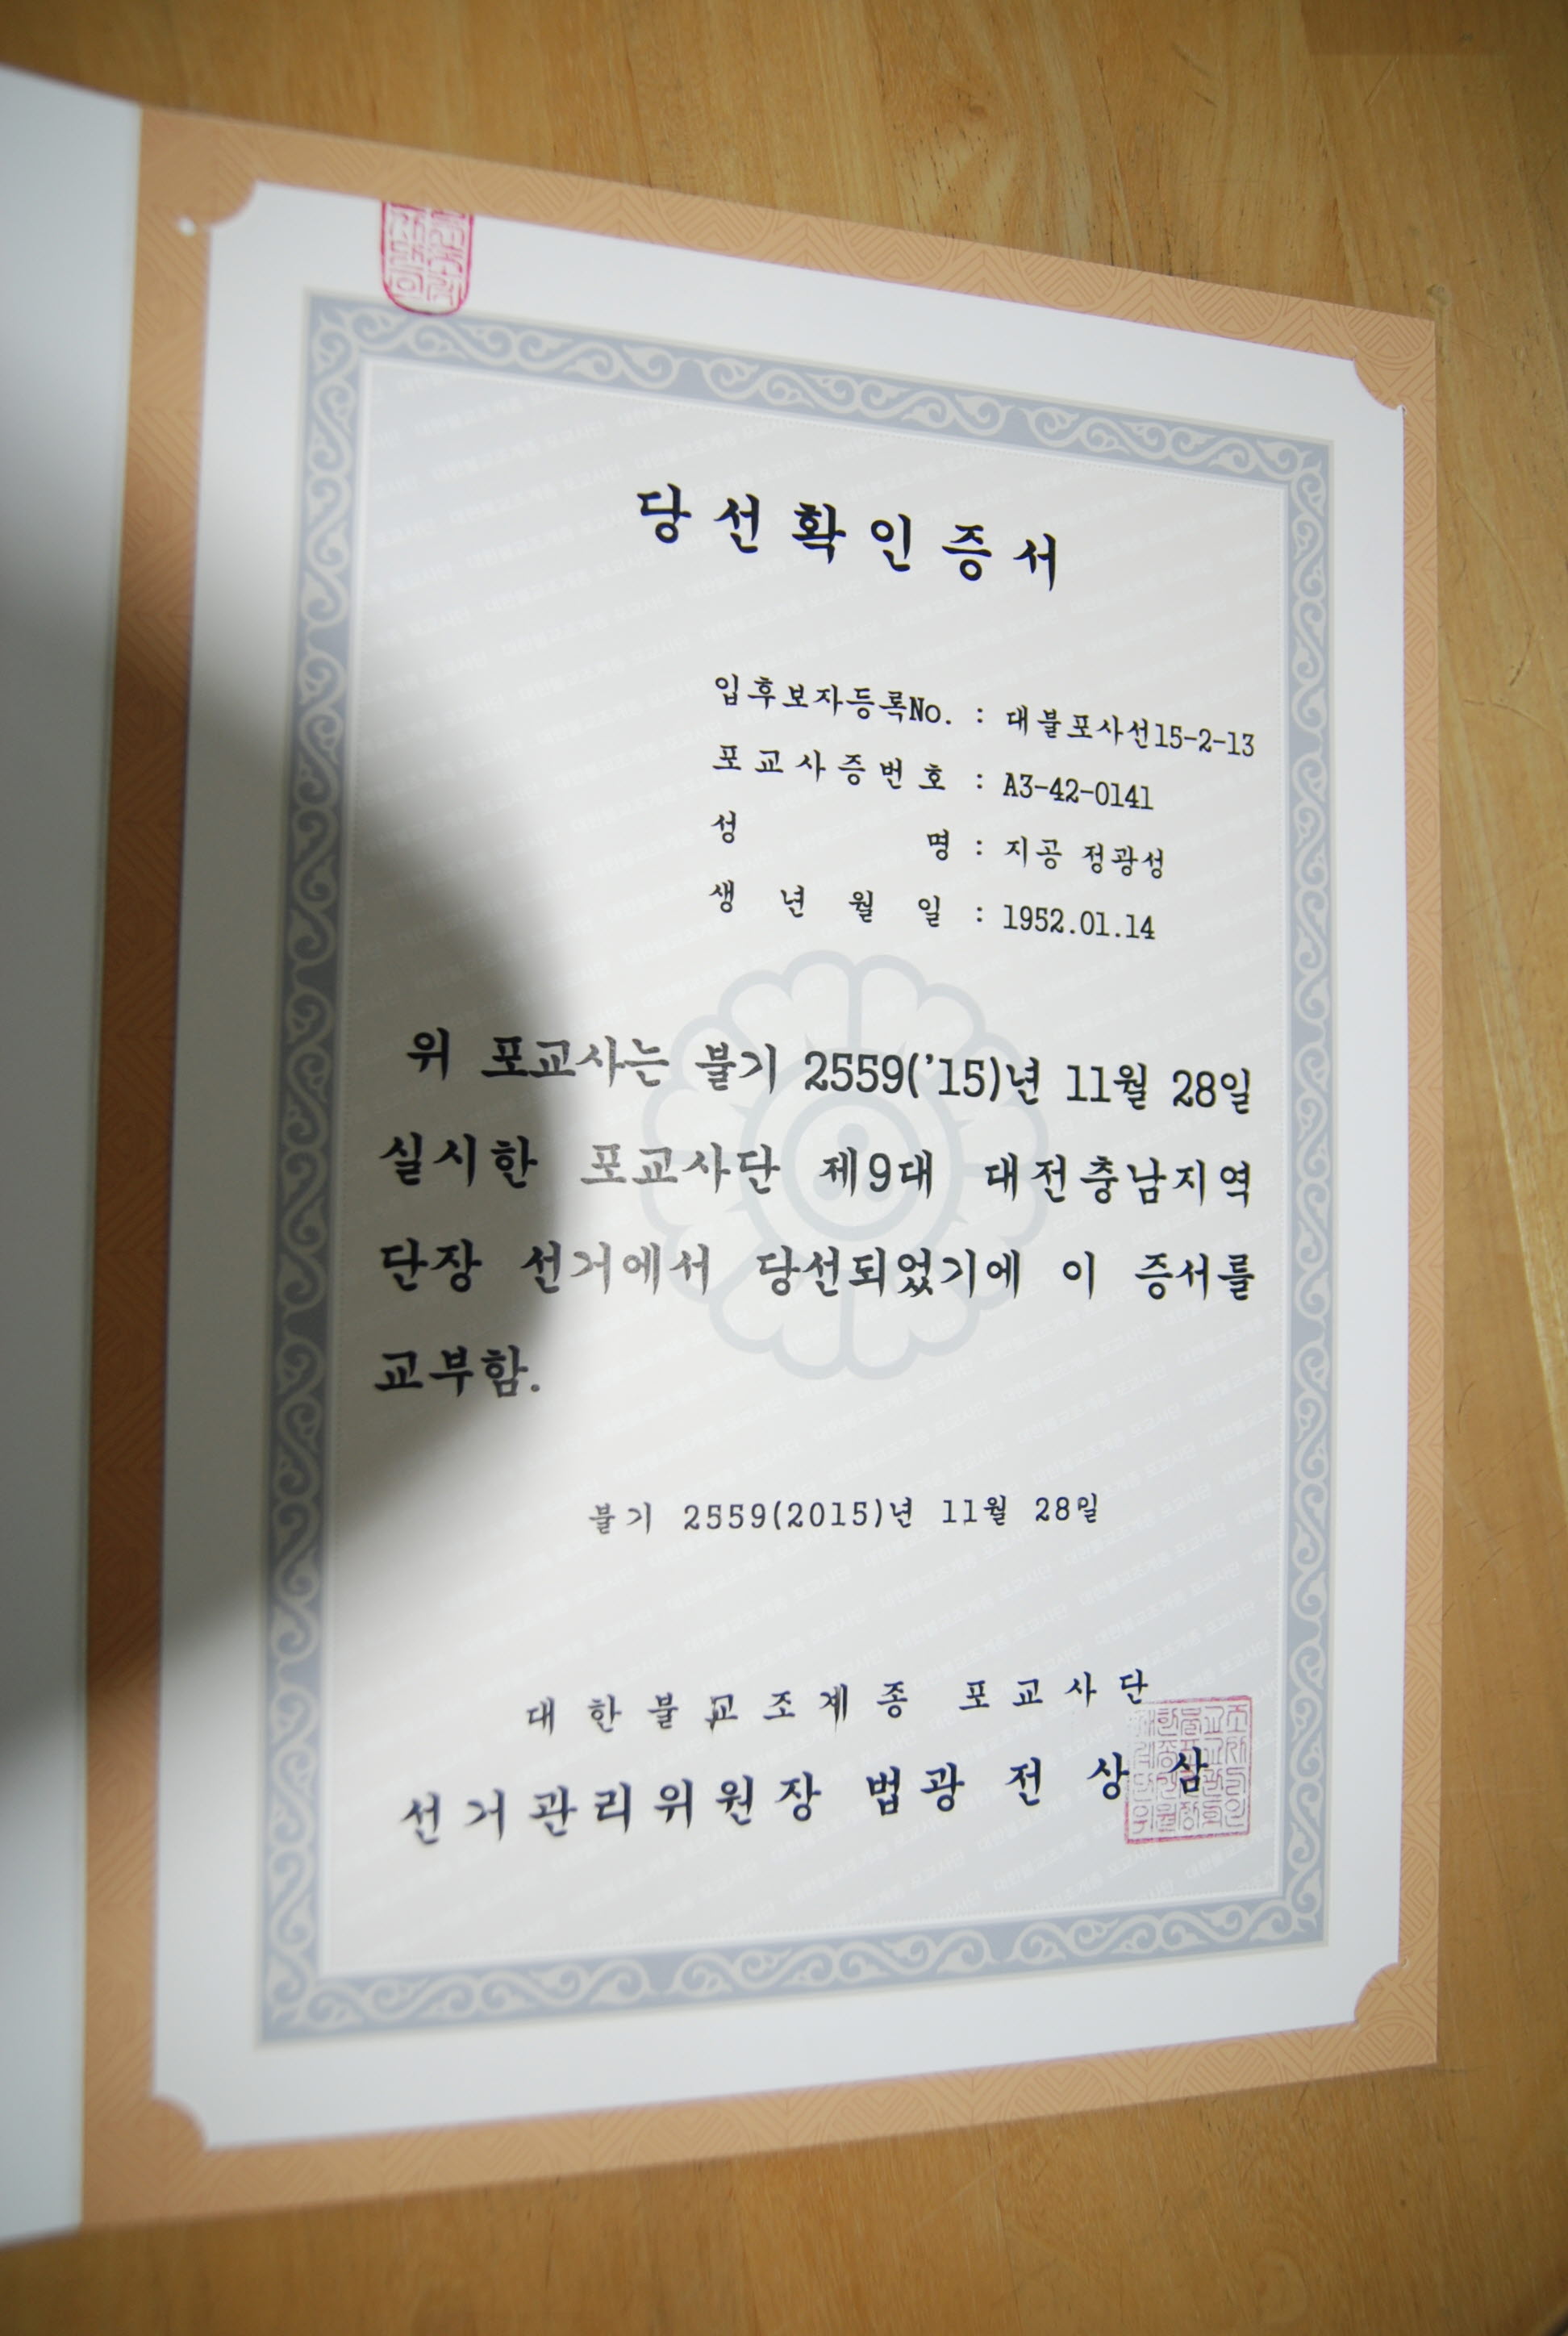 당선확인증서
입후보자등록No. : 대불포사선15-2-13
포교사증번호 : A3-42-0141
성 명 : 지공 정광성
생년월일 : 1952.01.14
위 포교사는 불기 2559('15)년 11월 28일
실시한 포교사단 제9대 대전충남지역
단장 선거에서 당선되었기에 이 증서를
교부함.
불기 2559(2015)년 11월 28일
대한불교조계종 포교사단
선거관리위원장 법광 전상삼